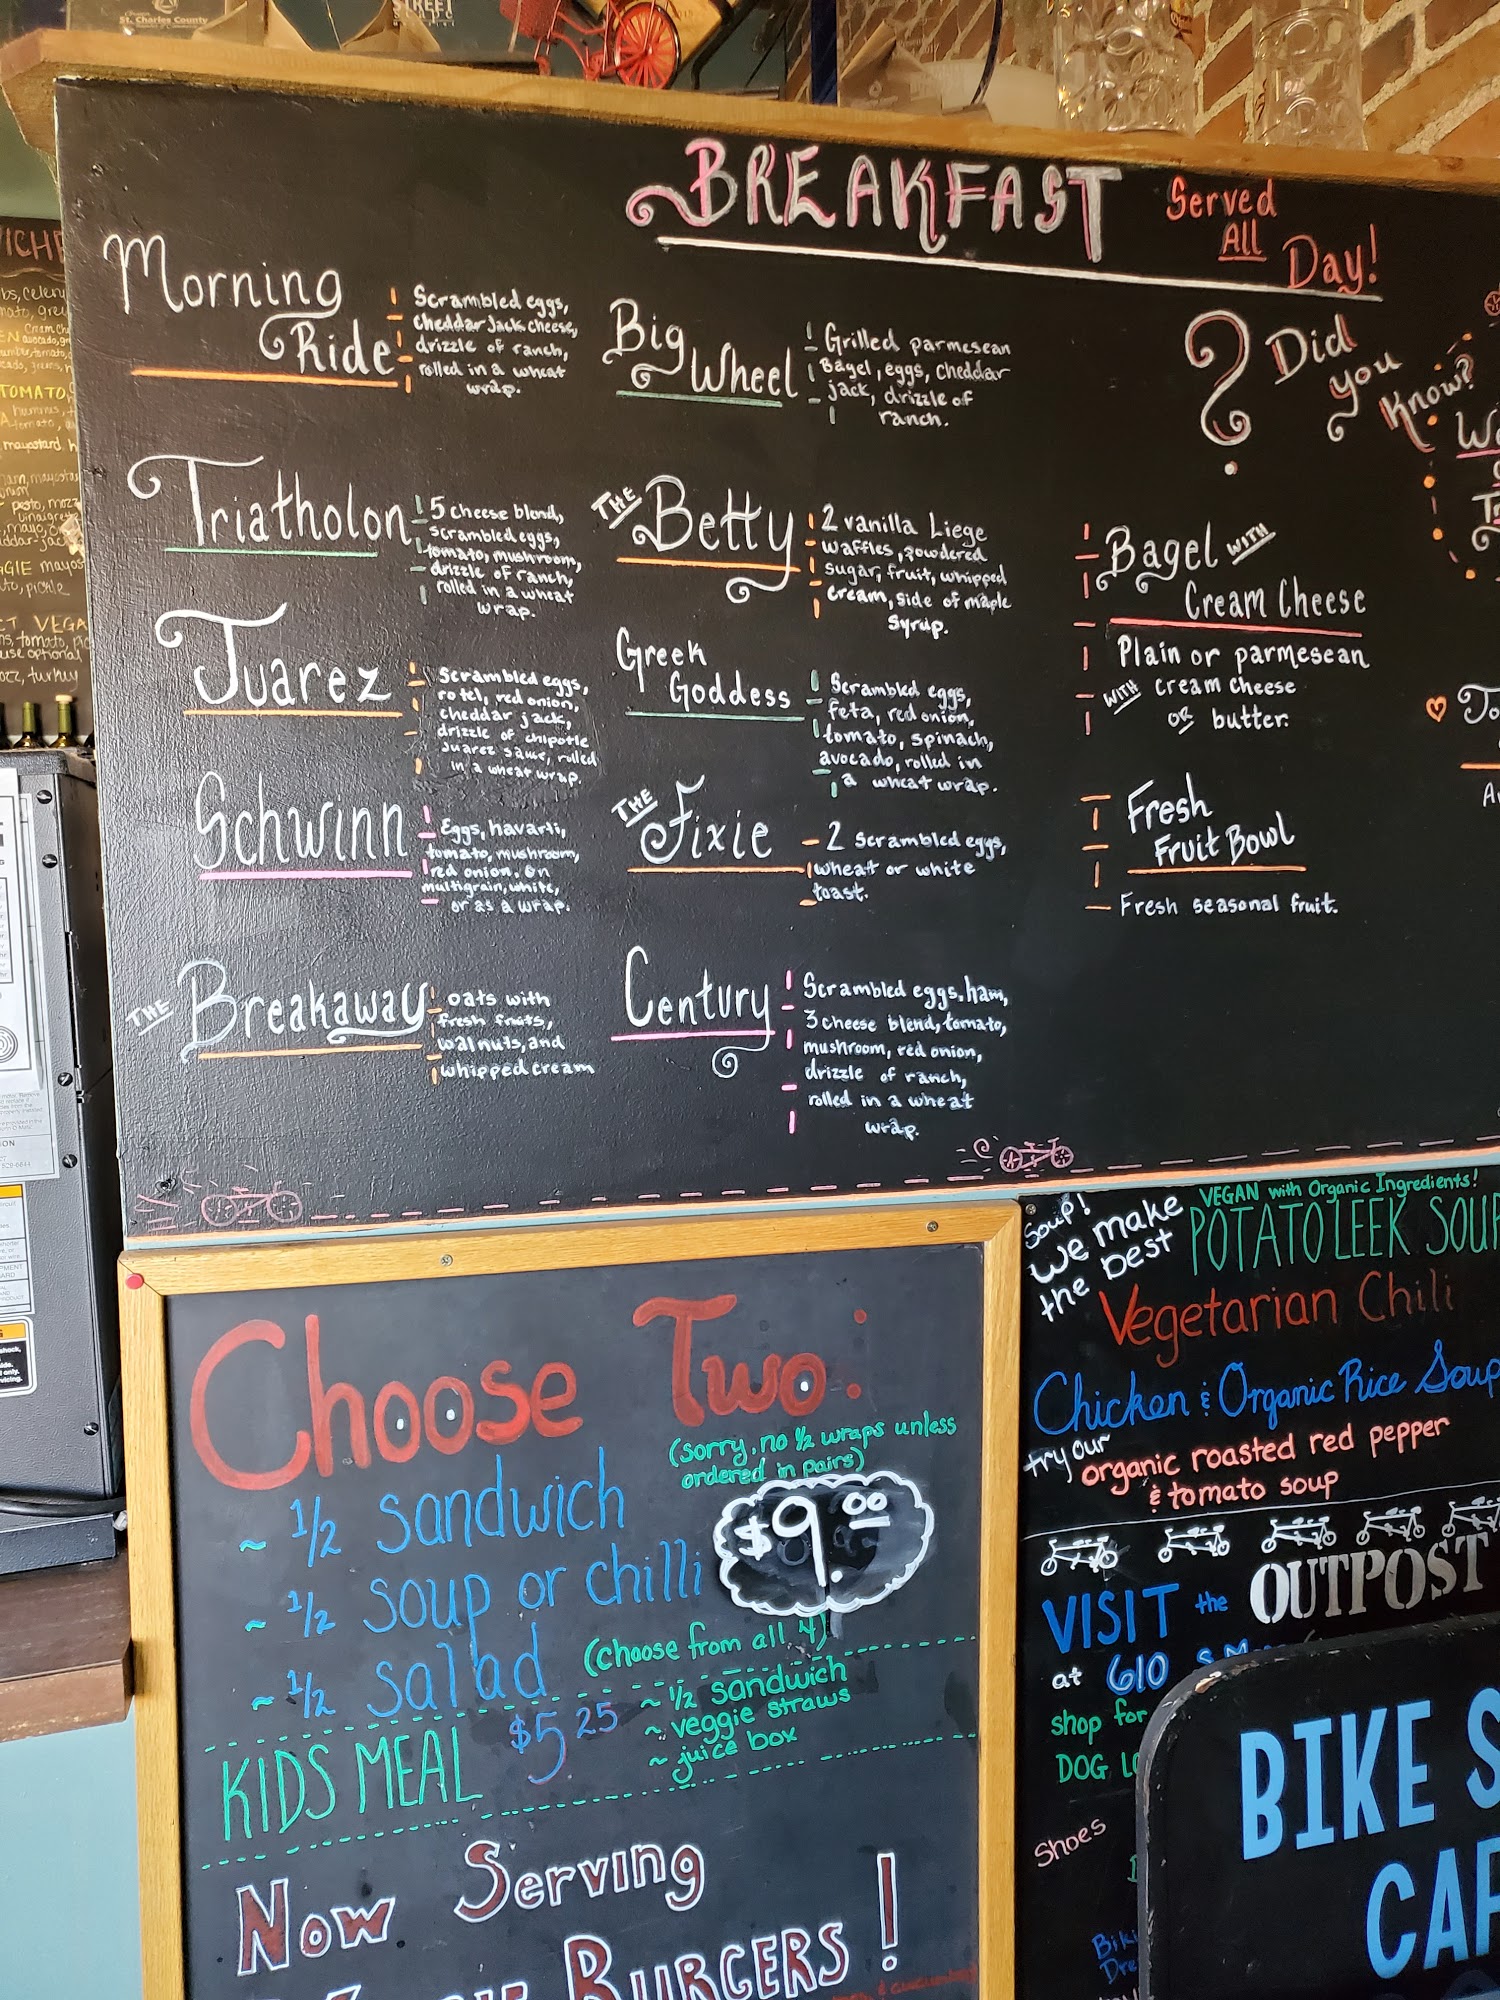 BREAKFAST
Served
All
Day!
Morning
Ride
Scrambled eggs,
cheddar jack cheese,
drizzle of ranch,
rolled in a wheat
wrap.
Triatholon
5 cheese blend,
scrambled eggs,
tomato, mushroom,
drizzle of ranch,
rolled in a wheat
wrap.
Juarez
Scrambled eggs,
rotel, red onion,
cheddar jack,
drizzle of chipotle
Juarez sauce, rolled
in a wheat wrap.
Schwinn
Eggs, havarti,
tomato, mushroom,
red onion. On
multigrain, white,
or as a wrap.
THE
Breakaway
oats with
fresh fruits,
walnuts, and
whipped cream
Big
Wheel
Grilled parmesean
Bagel, eggs, cheddar
jack, drizzle of
ranch.
THE
Betty
2 vanilla Liege
waffles, powdered
sugar, fruit, whipped
cream, side of maple
syrup.
Greek
Goddess
Scrambled eggs,
feta, red onion,
tomato, spinach,
avocado, rolled in
a wheat wrap.
THE
Fixie
2 scrambled eggs,
wheat or white
toast.
Century
Scrambled eggs, ham,
3 cheese blend, tomato,
mushroom, red onion,
drizzle of ranch,
rolled in a wheat
wrap.
? Did
you
Know?
Bagel with
Cream Cheese
Plain or parmesean
with cream cheese
or butter.
Fresh
Fruit Bowl
Fresh seasonal fruit.
Choose Two:
(sorry, no ½ wraps unless
ordered in pairs)
~ ½ sandwich
~ ½ soup or chilli
$9.00
~ ½ salad (choose from all 4)
KIDS MEAL $5.25
~ ½ sandwich
~ veggie straws
~ juice box
Now Serving
BURGERS!
Soup!
We make
the best
VEGAN with Organic Ingredients!
POTATO LEEK SOUP
Vegetarian Chili
Chicken & Organic Rice Soup
try our
organic roasted red pepper
& tomato soup
VISIT the OUTPOST
at 610 S.
shop for
DOG
Shoes
BIKE
St. Charles County
STREET
TOMATO,
mayostard
turkey